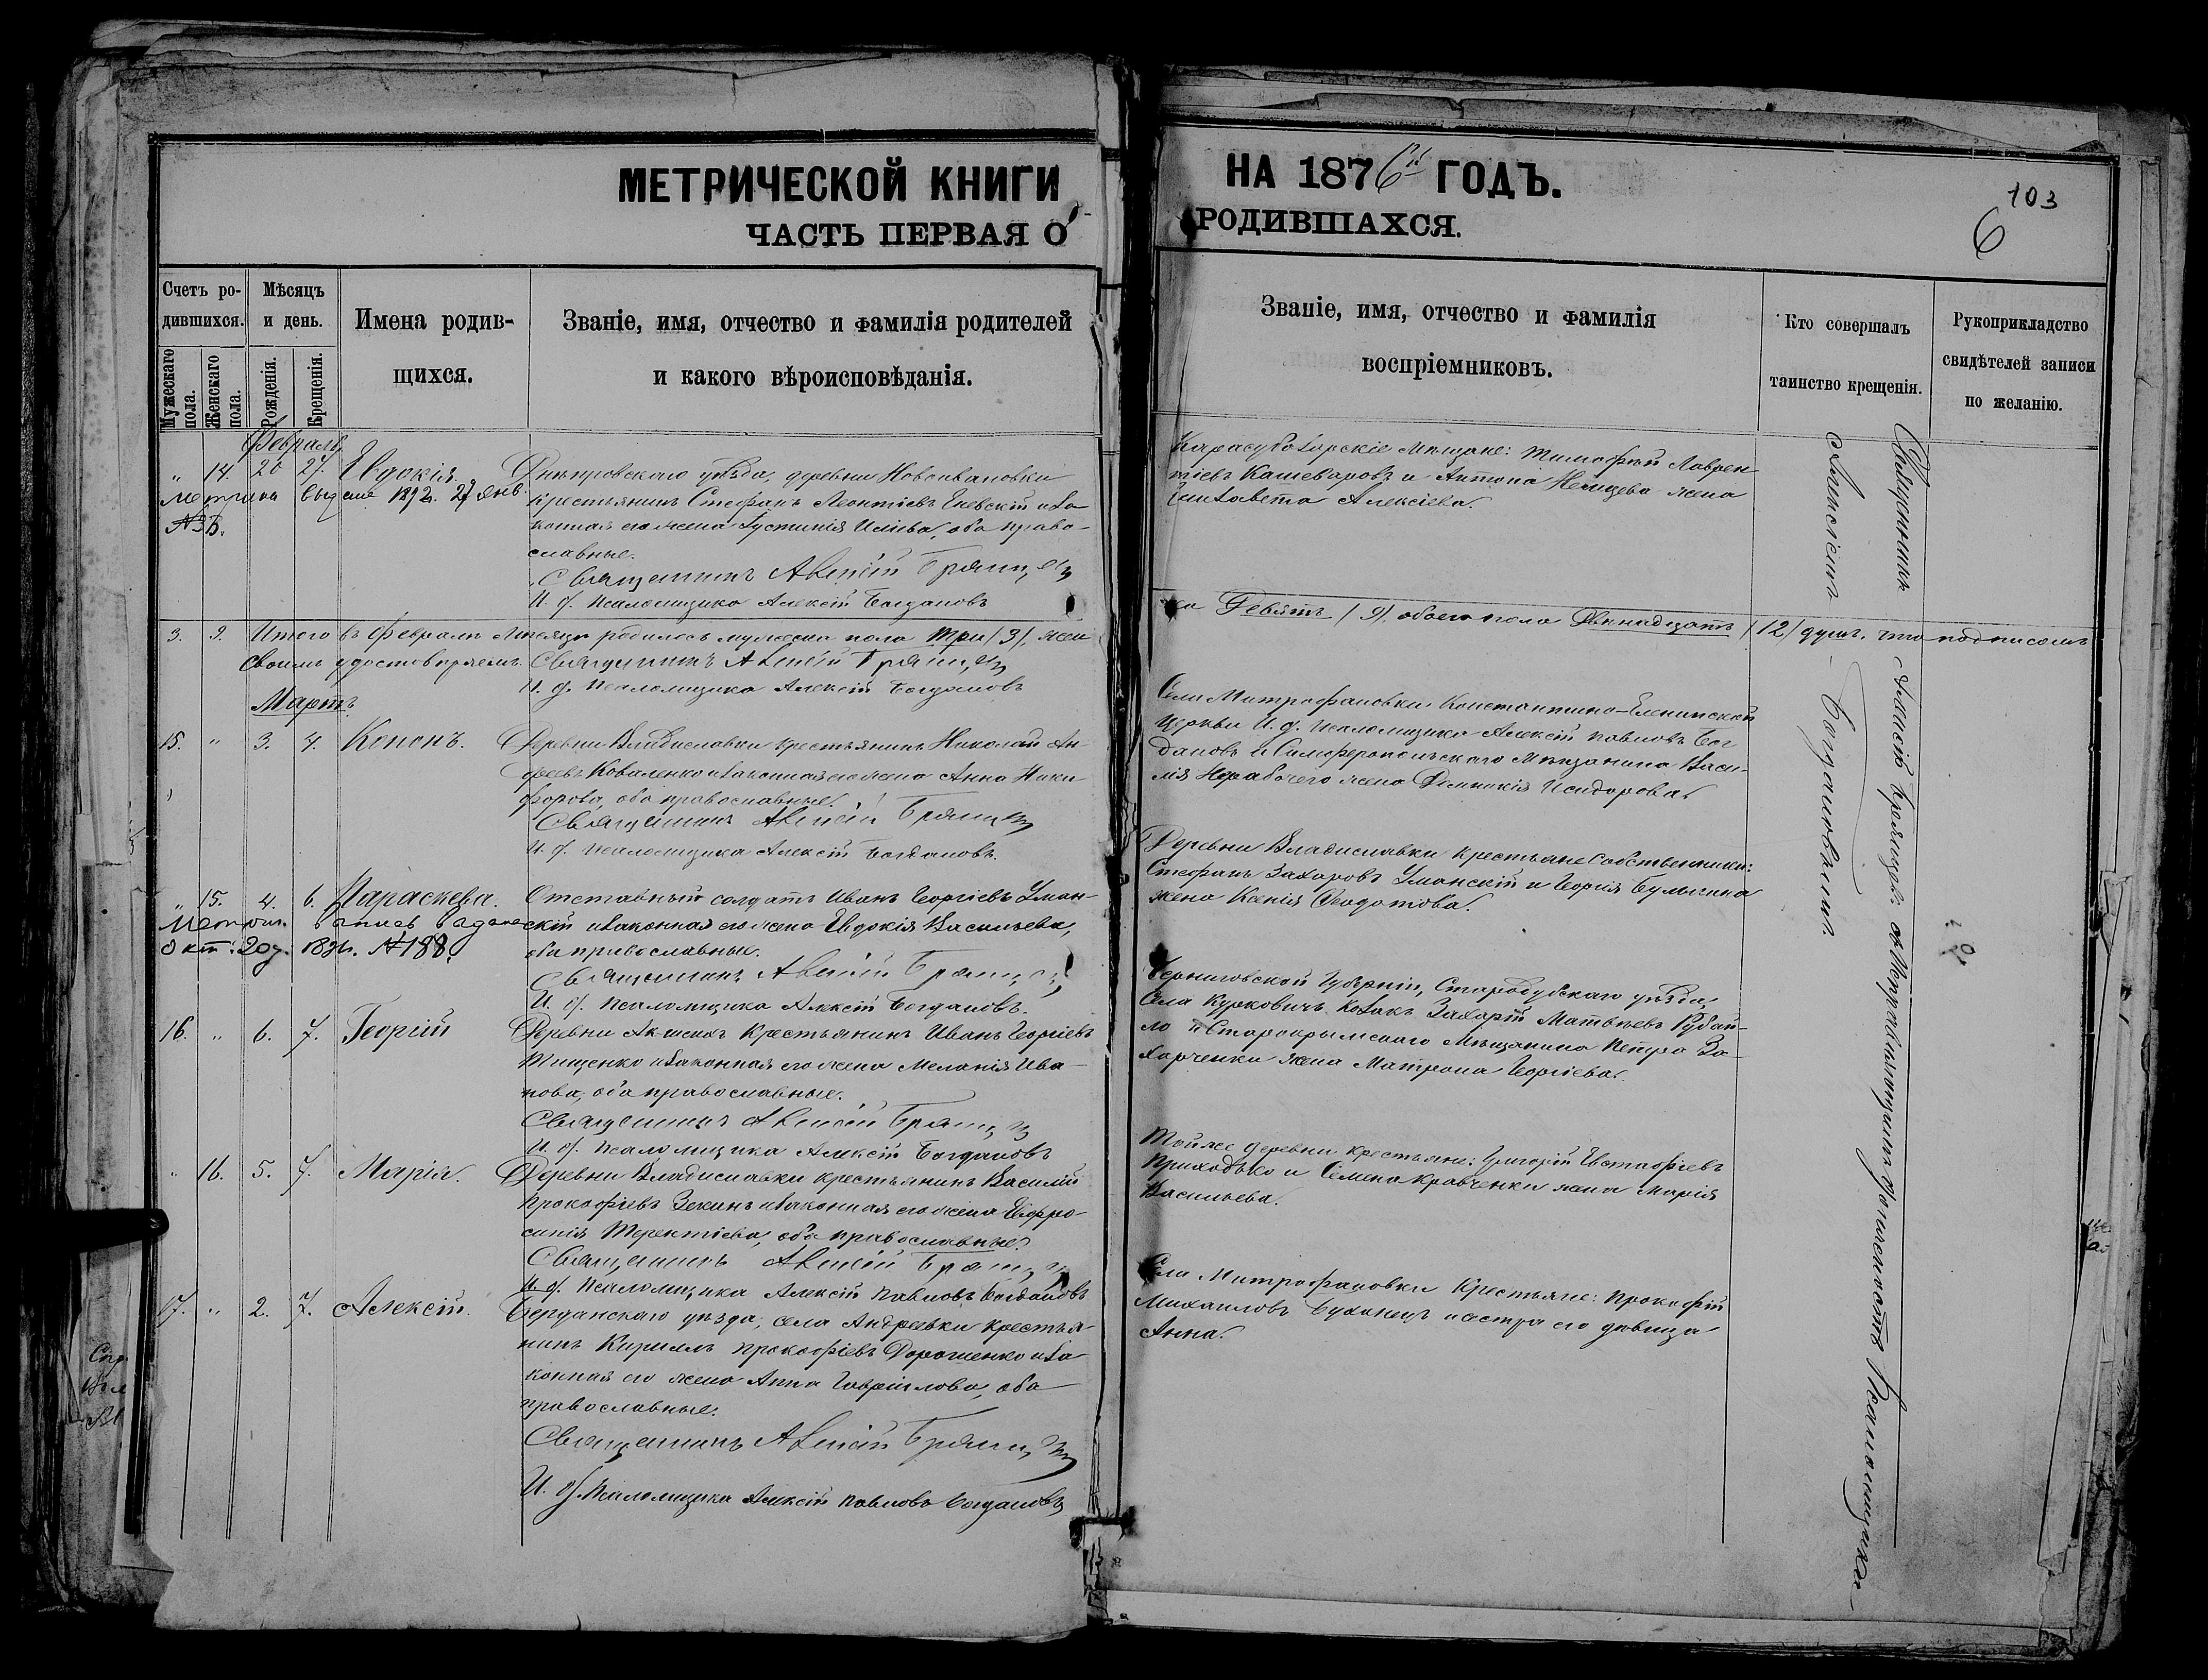 МЕТРИЧЕСКОЙ КНИГИ
ЧАСТЬ ПЕРВАЯ О
НА 1876й ГОДЪ.
РОДИВШАХСЯ.
103
6
Счетъ ро-
дившихся.
Мужескаго пола.
Женскаго пола.
Мѣсяцъ
и день.
Рожденія.
Крещенія.
Имена родив-
щихся.
Званіе, имя, отчество и фамилія родителей
и какого вѣроисповѣданія.
Званіе, имя, отчество и фамилія
воспріемниковъ.
Кто совершалъ
таинство крещенія.
Рукоприкладство
свидѣтелей записи
по желанію.
Февраль
" 14. 26 27. Евдокія.
Днѣпровскаго уѣзда, деревни Новоивановки
крестьянинъ Стефанъ Леонтіевъ и за-
конная его жена Іустинія Иліева, оба право-
славные.
Священникъ Алексій Брянцевъ
И. д. Псаломщика Алексій Богдановъ
Метрика выдана 1892. 27 Янв.
Карасубазарскіе Мѣщане: Тимофей Лаврен-
тіевъ Кашеваровъ и Антона жена
Елизавета Алексіева.
3. 9. Итого въ Февралѣ Мѣсяцѣ родилось мужеска пола три /3/, жен-
ска Девять /9/, обоего пола Двѣнадцать /12/ душъ, что подписомъ
своимъ удостовѣряемъ. Священникъ Алексій Брянцевъ
И. д. Псаломщика Алексій Богдановъ
Мартъ
15. " 3. 4. Кононъ.
Деревни Владиславки крестьянинъ Николай Ан-
дреевъ Коваленко и законная его жена Анна Ники-
форова, оба православные.
Священникъ Алексій Брянцевъ
И. д. Псаломщика Алексій Богдановъ.
Села Митрофановки, Константино-Еленинской
Церкви И. д. Псаломщика Алексій Павловъ Бог-
дановъ и Симферопольскаго Мѣщанина Васи-
лія жена Исидорова.
" 15. 4. 6. Параскева.
Отставный солдатъ Иванъ Георгіевъ Уман-
скій и законная его жена Евдокія Васильева,
оба православные.
Священникъ Алексій Брянцевъ
И. д. Псаломщика Алексій Богдановъ.
Метрич. запись выдана
Окт. 20 д. N188.
Деревни Владиславки крестьяне собственники:
Стефанъ Захаровъ Уманскій и Георгія Булыгина
жена Ксенія Ѳеодотова.
16. " 6. 7. Георгій
Деревни крестьянинъ Иванъ Георгіевъ
Тищенко и законная его жена Меланія Ива-
нова, оба православные.
Священникъ Алексій Брянцевъ
И. д. Псаломщика Алексій Богдановъ
Черниговской Губерніи, Стародубскаго уѣзда,
Села Курковичъ козакъ Захарій Матвѣевъ Рубай-
ло и Старокрымскаго Мѣщанина Петра За-
харченки жена Матрона Георгіева.
" 16. 5. 7. Марія.
Деревни Владиславки крестьянинъ Василій
Прокофіевъ и законная его жена Евфро-
синія Терентіева, оба православные.
Священникъ Алексій Брянцевъ
И. д. Псаломщика Алексій Павловъ Богдановъ
Той же деревни крестьяне: Григорій Евстафіевъ
Приходько и Семена Кравченки жена Марія
Васильева.
17. " 2. 7. Алексій.
Бердянскаго уѣзда, села Андреевки крестья-
нинъ Кириллъ Прокофіевъ Дорошенко и за-
конная его жена Анна Гавриилова, оба
православные.
Священникъ Алексій Брянцевъ
И. д. Псаломщика Алексій Павловъ Богдановъ
Села Митрофановки Крестьяне: Прокофій
Михаиловъ и сестра его дѣвица
Анна.
Священникъ Алексій Брянцевъ съ Исправляющимъ должность Псаломщика
Алексіемъ Богдановымъ.